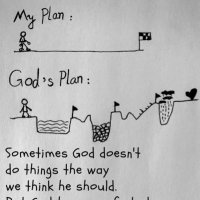 My Plan :
God's Plan :
Sometimes God doesn't
do things the way
we think he should.